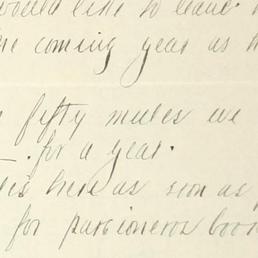 would like to leave
coming year as
fifty mules we
- for a year.
here as soon as
for parsioneros boo